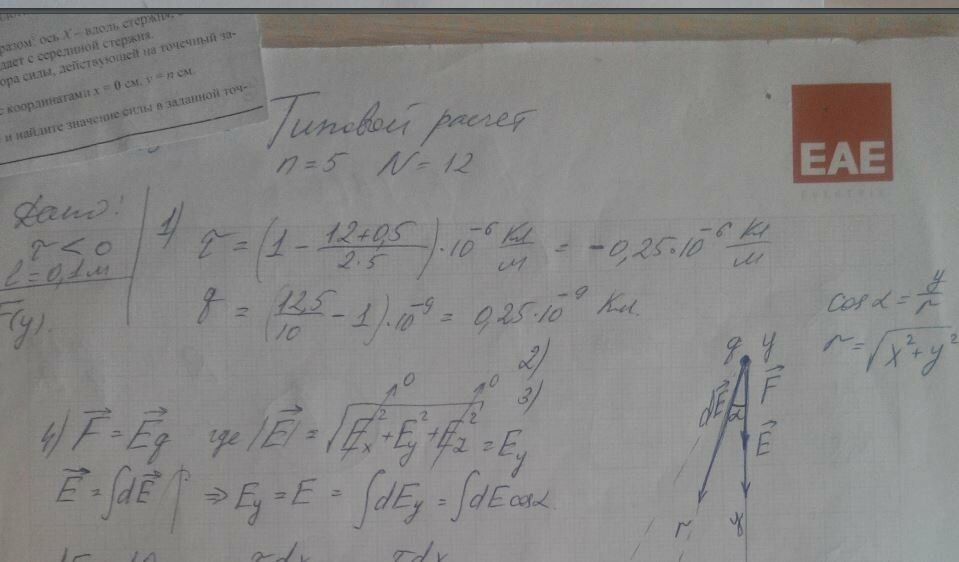 разом: ось X – вдоль стержня,
дает с серединой стержня.
ора силы, действующей на точечный за-
с координатами x = 0 см, y = n см.
и найдите значение силы в заданной точ-
Типовой расчет
n = 5 N = 12
EAE
Дано:
τ < 0
l = 0,1 м
F(y).
1) τ = (1 - (12+0,5)/(2·5))·10⁻⁶ Кл/м = -0,25·10⁻⁶ Кл/м
q = (12,5/10 - 1)·10⁻⁹ = 0,25·10⁻⁹ Кл.
cos α = y/r
r = √(x² + y²)
2)
3)
q y
dE⃗ α F⃗
E⃗
r
4) F⃗ = E⃗q где |E⃗| = √(Ex² + Ey² + Ez²) = Ey
0 0
E⃗ = ∫dE⃗ ⇒ Ey = E = ∫dEy = ∫dE cos α.
τdx τdx